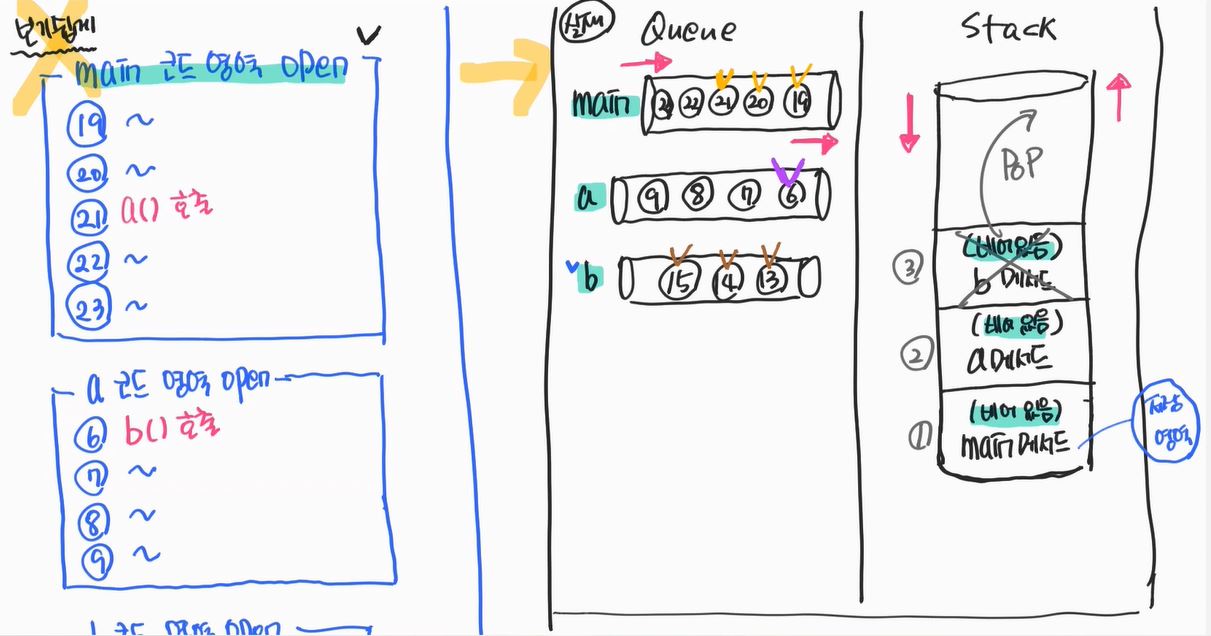 보기쉽게
main 코드 영역 open
19 ~
20 ~
21 a() 호출
22 ~
23 ~
a 코드 영역 open
6 b() 호출
7 ~
8 ~
9 ~
b 코드 영역 open
실제
Queue
main 22 21 20 19
a 9 8 7 6
b 15 14 13
Stack
POP
3 (비어있음)
b 메서드
2 (비어있음)
a 메서드
1 (비어있음)
main 메서드
저장
영역